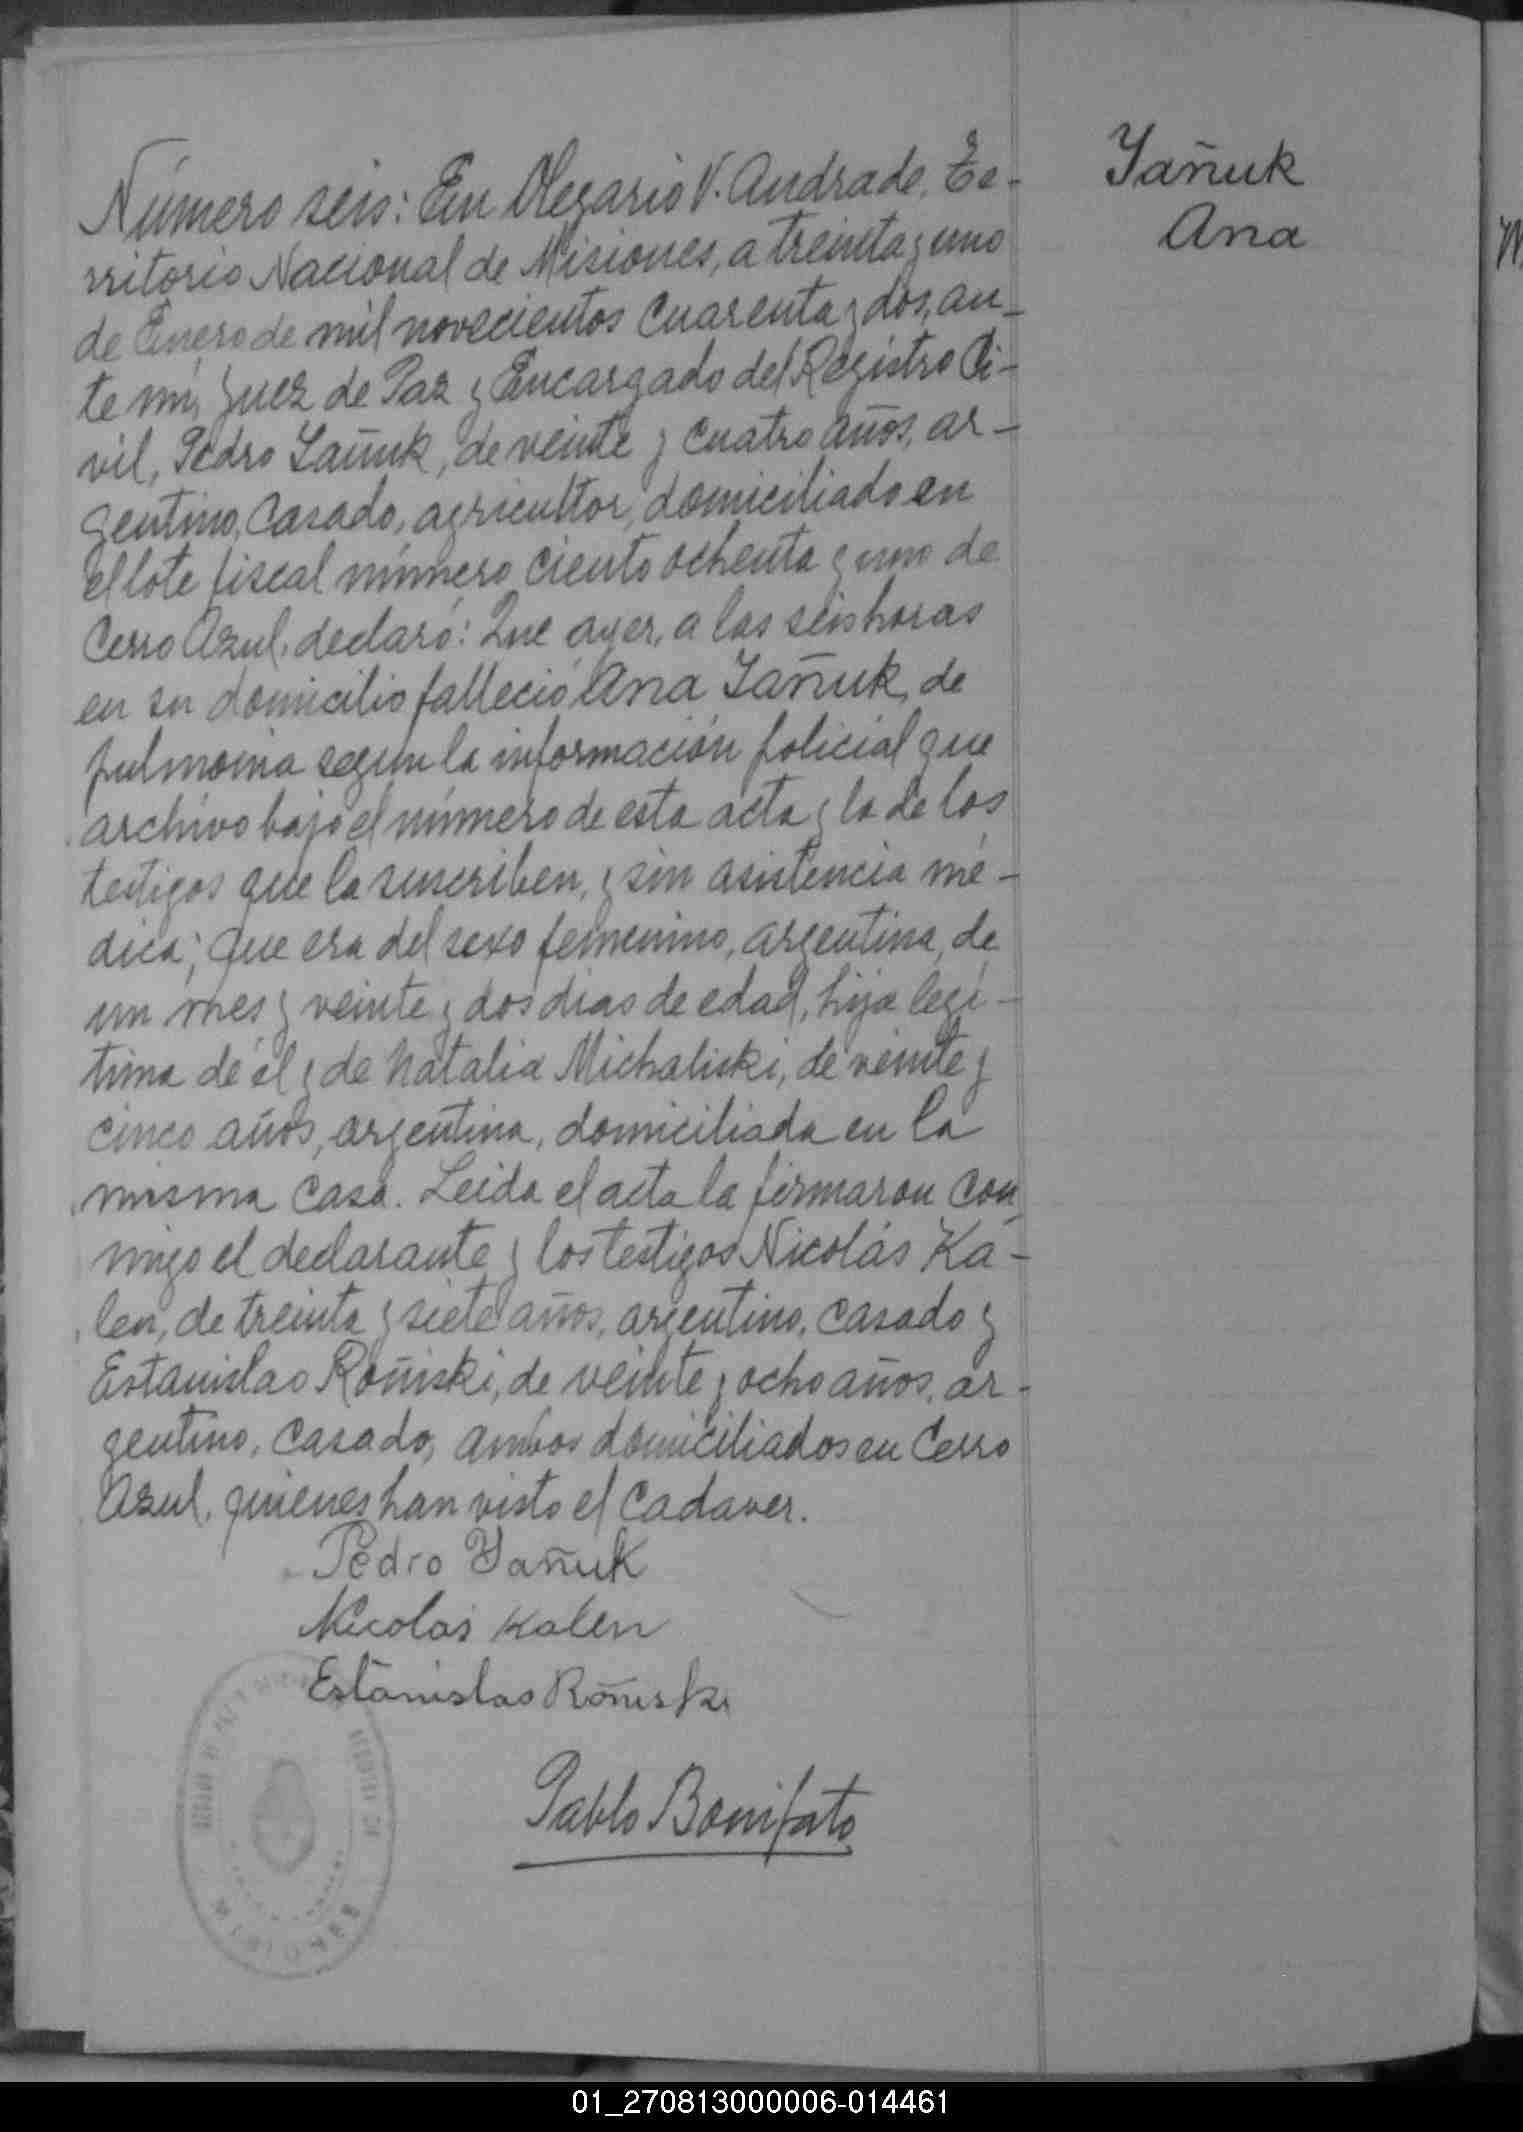 Yañuk
Ana
Número seis: En Olegario V. Andrade, Te-
rritorio Nacional de Misiones, a treinta y uno
de Enero de mil novecientos cuarenta y dos, an-
te mí, Juez de Paz y Encargado del Registro Ci-
vil, Pedro Yañuk, de veinte y cuatro años, ar-
gentino, casado, agricultor, domiciliado en
el lote fiscal número ciento ochenta y uno de
Cerro Azul, declaró: Que ayer, a las seis horas
en su domicilio falleció Ana Yañuk, de
pulmonia segun la información policial que
archivo bajo el número de esta acta y la de los
testigos que la suscriben, y sin asistencia mé-
dica; que era del sexo femenino, argentina, de
un mes y veinte y dos días de edad, hija legí-
tima de él y de Natalia Michaliski, de veinte y
cinco años, argentina, domiciliada en la
misma casa. Leida el acta la firmaron con
migo el declarante y los testigos Nicolás Ka-
len, de treinta y siete años, argentino, casado y
Estanislao Roñiski, de veinte y ocho años, ar-
gentino, casado, ambos domiciliados en Cerro
Azul, quienes han visto el cadaver.
Pedro Yañuk
Nicolas Kalen
Estanislao Roñiski
Pablo Bonifato
MISIONES
01_270813000006-014461